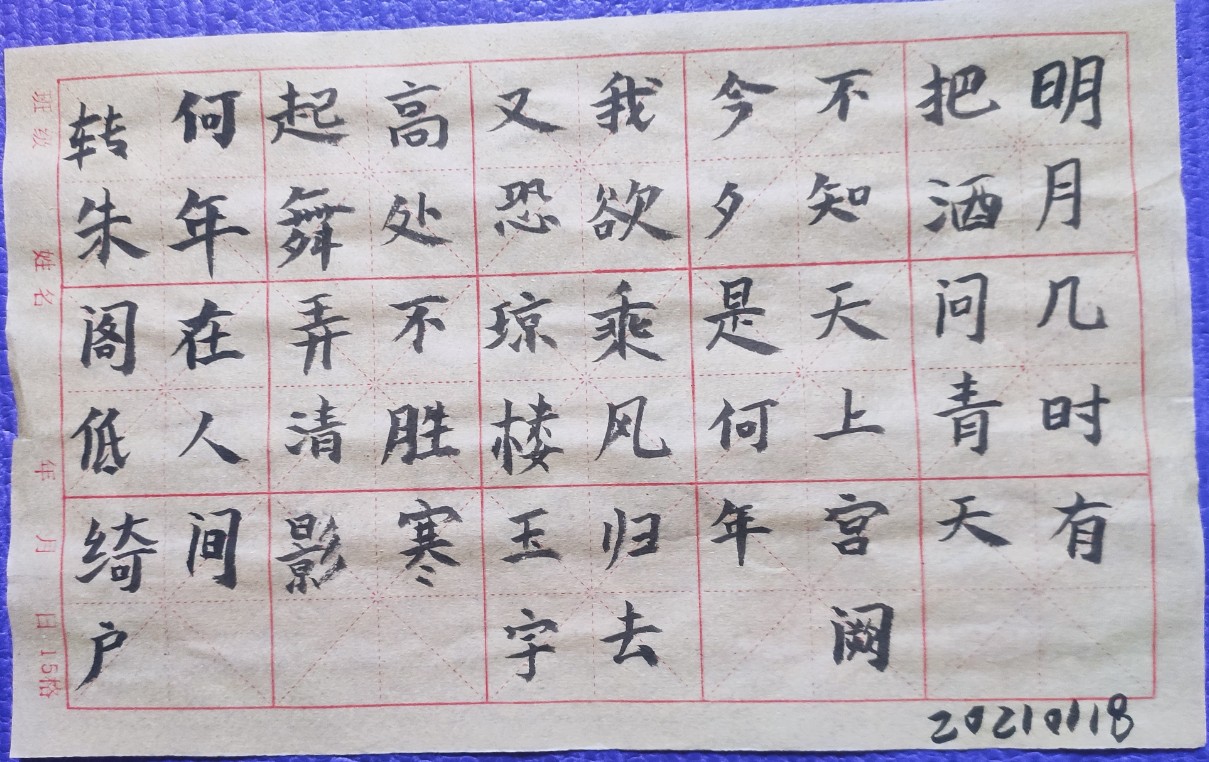 明月几时有
把酒问青天
不知天上宫阙
今夕是何年
我欲乘风归去
又恐琼楼玉宇
高处不胜寒
起舞弄清影
何年在人间
转朱阁低绮户
班级 姓名 年 月 日 15格
20210118